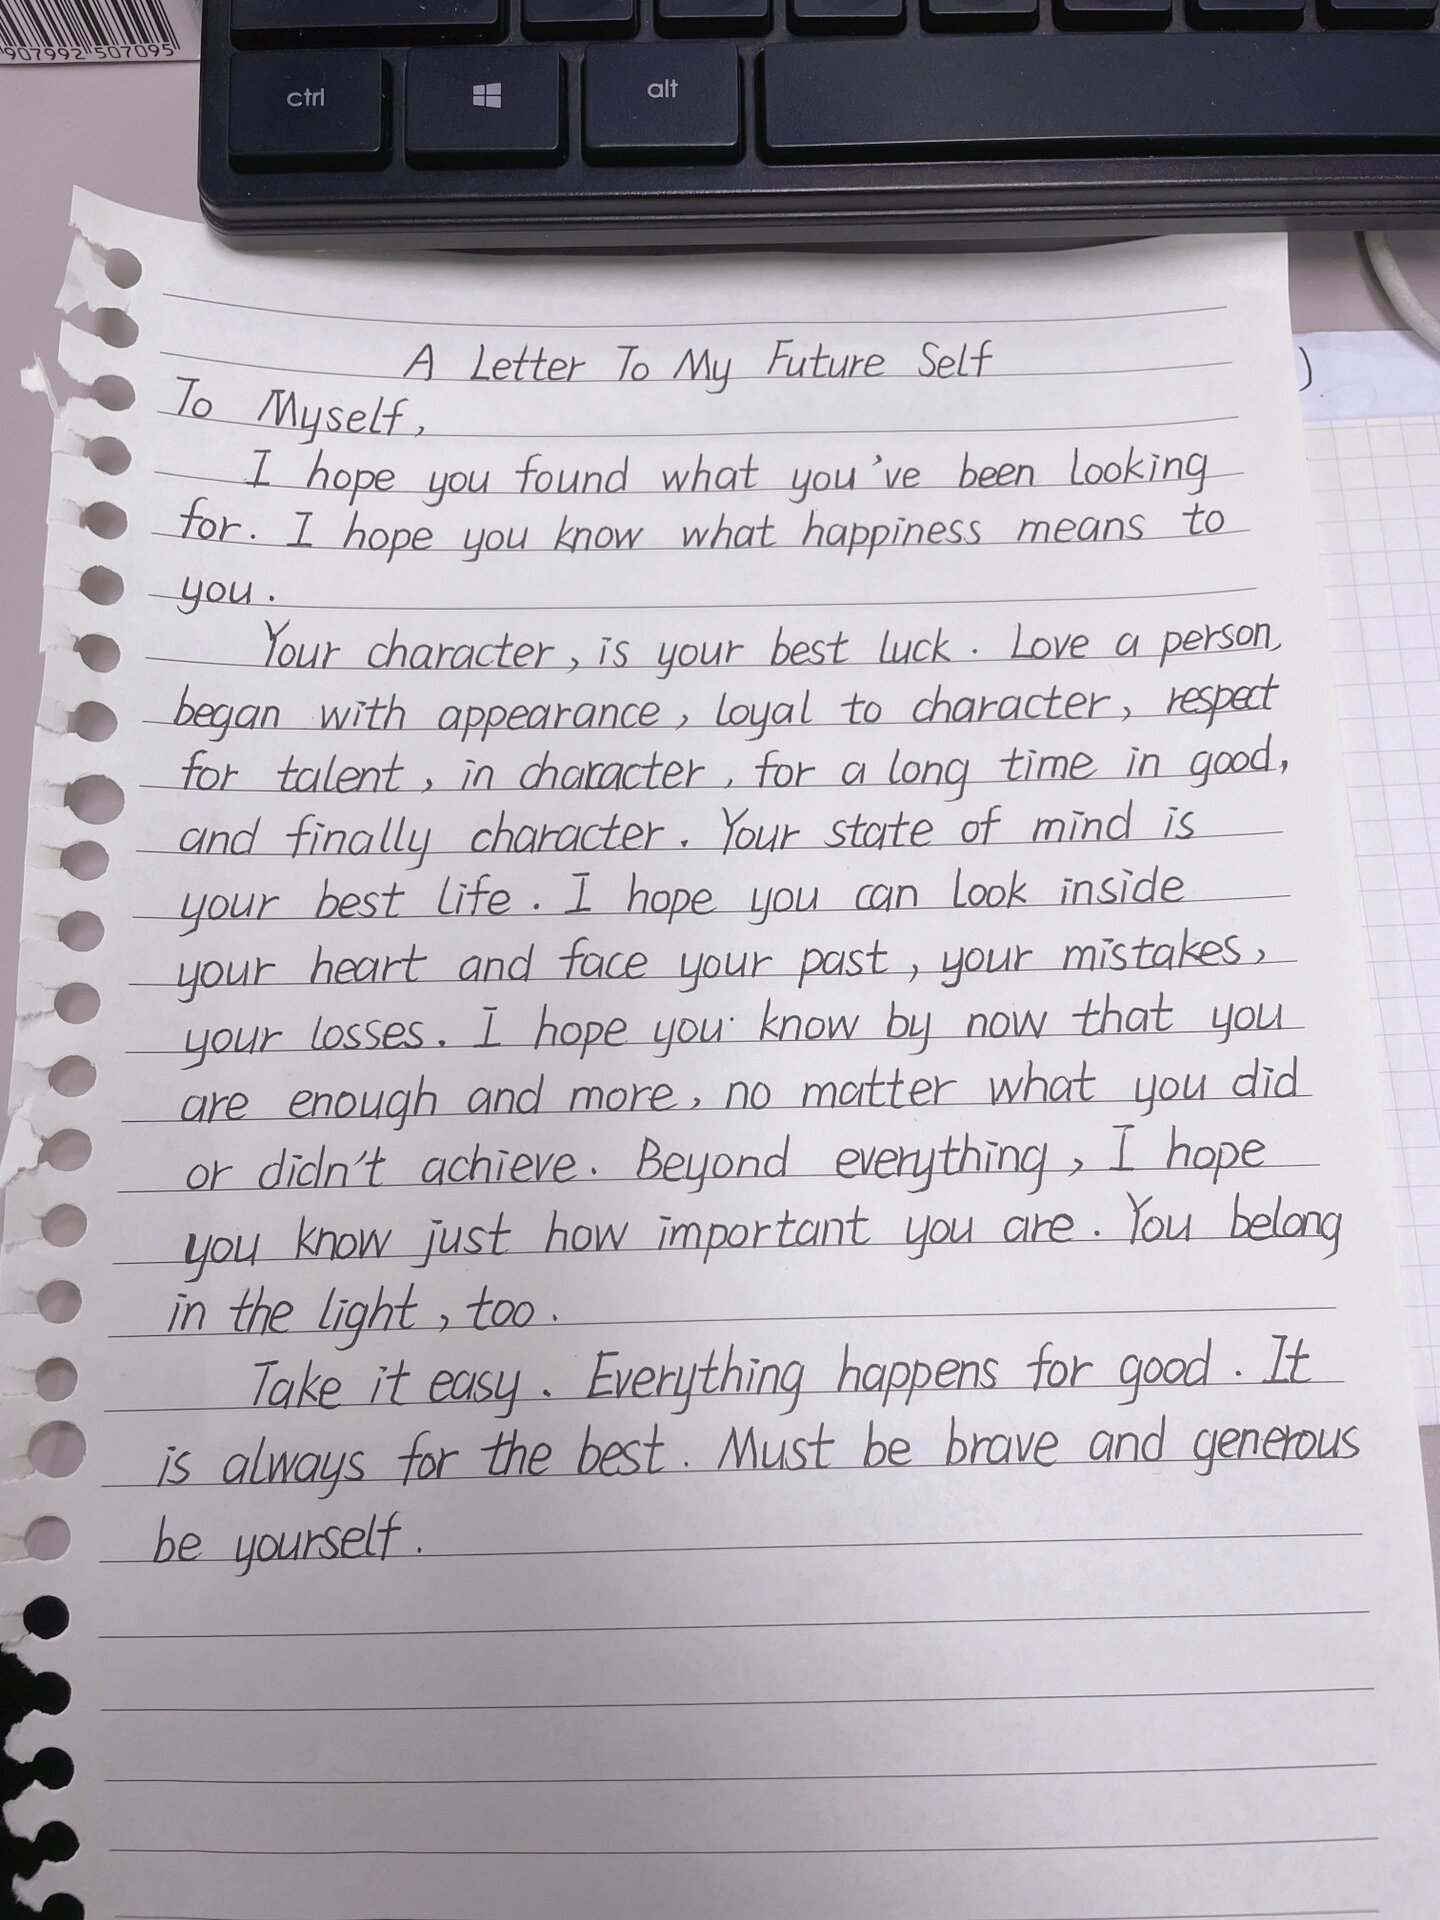 907992 507095
ctrl
alt
A Letter To My Future Self
To Myself,
I hope you found what you've been looking
for. I hope you know what happiness means to
you.
Your character, is your best luck. Love a person,
began with appearance, loyal to character, respect
for talent, in character, for a long time in good,
and finally character. Your state of mind is
your best life. I hope you can look inside
your heart and face your past, your mistakes,
your losses. I hope you know by now that you
are enough and more, no matter what you did
or didn't achieve. Beyond everything, I hope
you know just how important you are. You belong
in the light, too.
Take it easy. Everything happens for good. It
is always for the best. Must be brave and generous
be yourself.
)